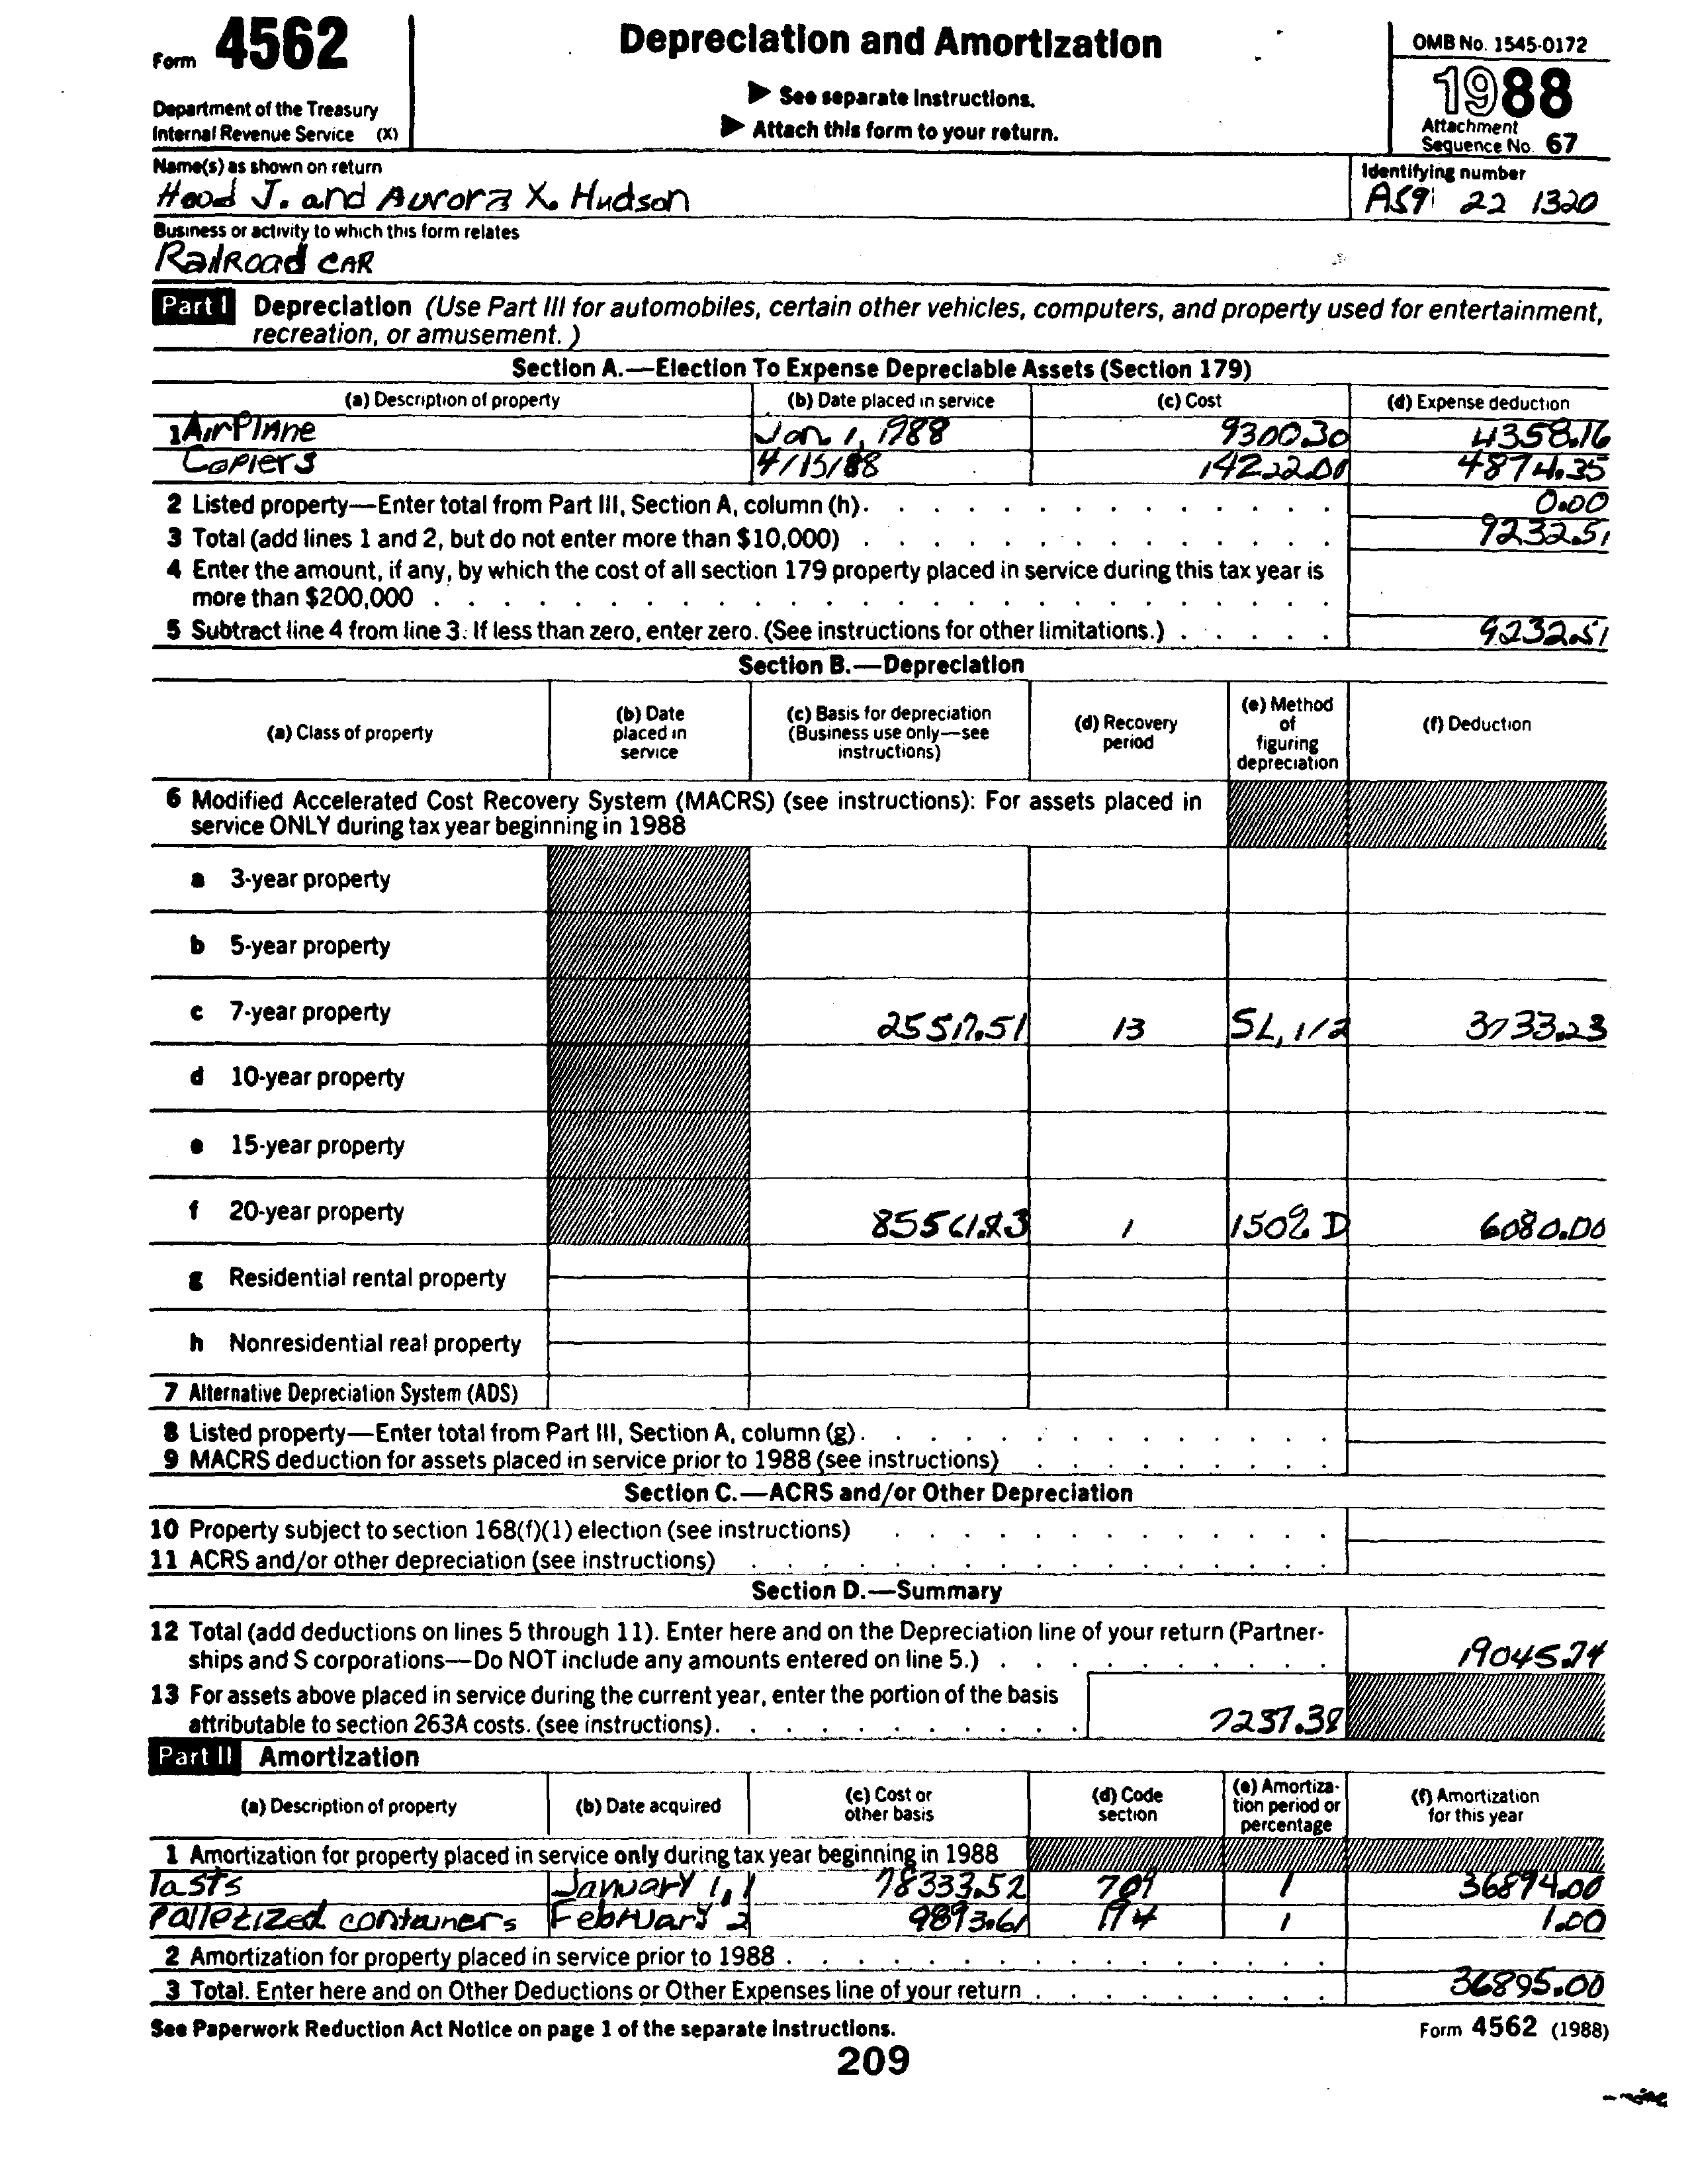 Form 4562
Depreciation and Amortization
OMB No. 1545-0172
1988
Department of the Treasury
Internal Revenue Service (X)
▶ See separate Instructions.
▶ Attach this form to your return.
Attachment
Sequence No. 67
Name(s) as shown on return
Identifying number
Hood J. and Aurora X. Hudson
A59 22 1320
Business or activity to which this form relates
RailRoad CAR
Part I Depreciation (Use Part III for automobiles, certain other vehicles, computers, and property used for entertainment,
recreation, or amusement.)
Section A.—Election To Expense Depreciable Assets (Section 179)
(a) Description of property (b) Date placed in service (c) Cost (d) Expense deduction
1 AirPlane Jan 1, 1988 9300.30 4358.16
Copiers 4/15/88 14222.00 4874.35
2 Listed property—Enter total from Part III, Section A, column (h). 0.00
3 Total (add lines 1 and 2, but do not enter more than $10,000) 9232.51
4 Enter the amount, if any, by which the cost of all section 179 property placed in service during this tax year is
more than $200,000
5 Subtract line 4 from line 3. If less than zero, enter zero. (See instructions for other limitations.) 9232.51
Section B.—Depreciation
(a) Class of property
(b) Date
placed in
service
(c) Basis for depreciation
(Business use only—see
instructions)
(d) Recovery
period
(e) Method
of
figuring
depreciation
(f) Deduction
6 Modified Accelerated Cost Recovery System (MACRS) (see instructions): For assets placed in
service ONLY during tax year beginning in 1988
a 3-year property
b 5-year property
c 7-year property 13 SL, 1/2 3733.23
d 10-year property
e 15-year property
f 20-year property 1 150% D 6080.00
g Residential rental property
h Nonresidential real property
7 Alternative Depreciation System (ADS)
8 Listed property—Enter total from Part III, Section A, column (g).
9 MACRS deduction for assets placed in service prior to 1988 (see instructions)
Section C.—ACRS and/or Other Depreciation
10 Property subject to section 168(f)(1) election (see instructions)
11 ACRS and/or other depreciation (see instructions)
Section D.—Summary
12 Total (add deductions on lines 5 through 11). Enter here and on the Depreciation line of your return (Partner-
ships and S corporations—Do NOT include any amounts entered on line 5.) 19045.74
13 For assets above placed in service during the current year, enter the portion of the basis
attributable to section 263A costs. (see instructions). 7237.38
Part II Amortization
(a) Description of property
(b) Date acquired
(c) Cost or
other basis
(d) Code
section
(e) Amortiza-
tion period or
percentage
(f) Amortization
for this year
1 Amortization for property placed in service only during tax year beginning in 1988
Tasts January 1, 1 78333.52 709 1 36894.00
Palletized containers February 2 9893.61 194 1 1.00
2 Amortization for property placed in service prior to 1988
3 Total. Enter here and on Other Deductions or Other Expenses line of your return 36895.00
See Paperwork Reduction Act Notice on page 1 of the separate Instructions.
Form 4562 (1988)
209